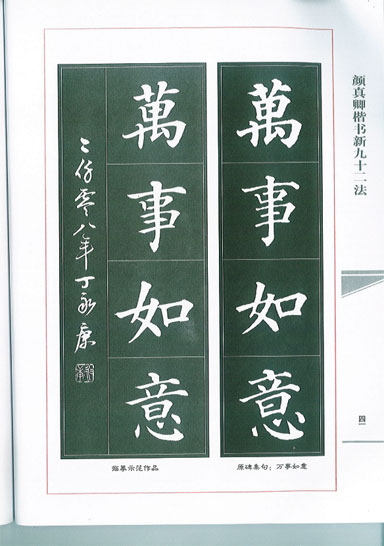 颜真卿楷书新九十二法
四一
萬事如意
原碑集句：万事如意
萬事如意
二仟零八年丁永康
临摹示范作品